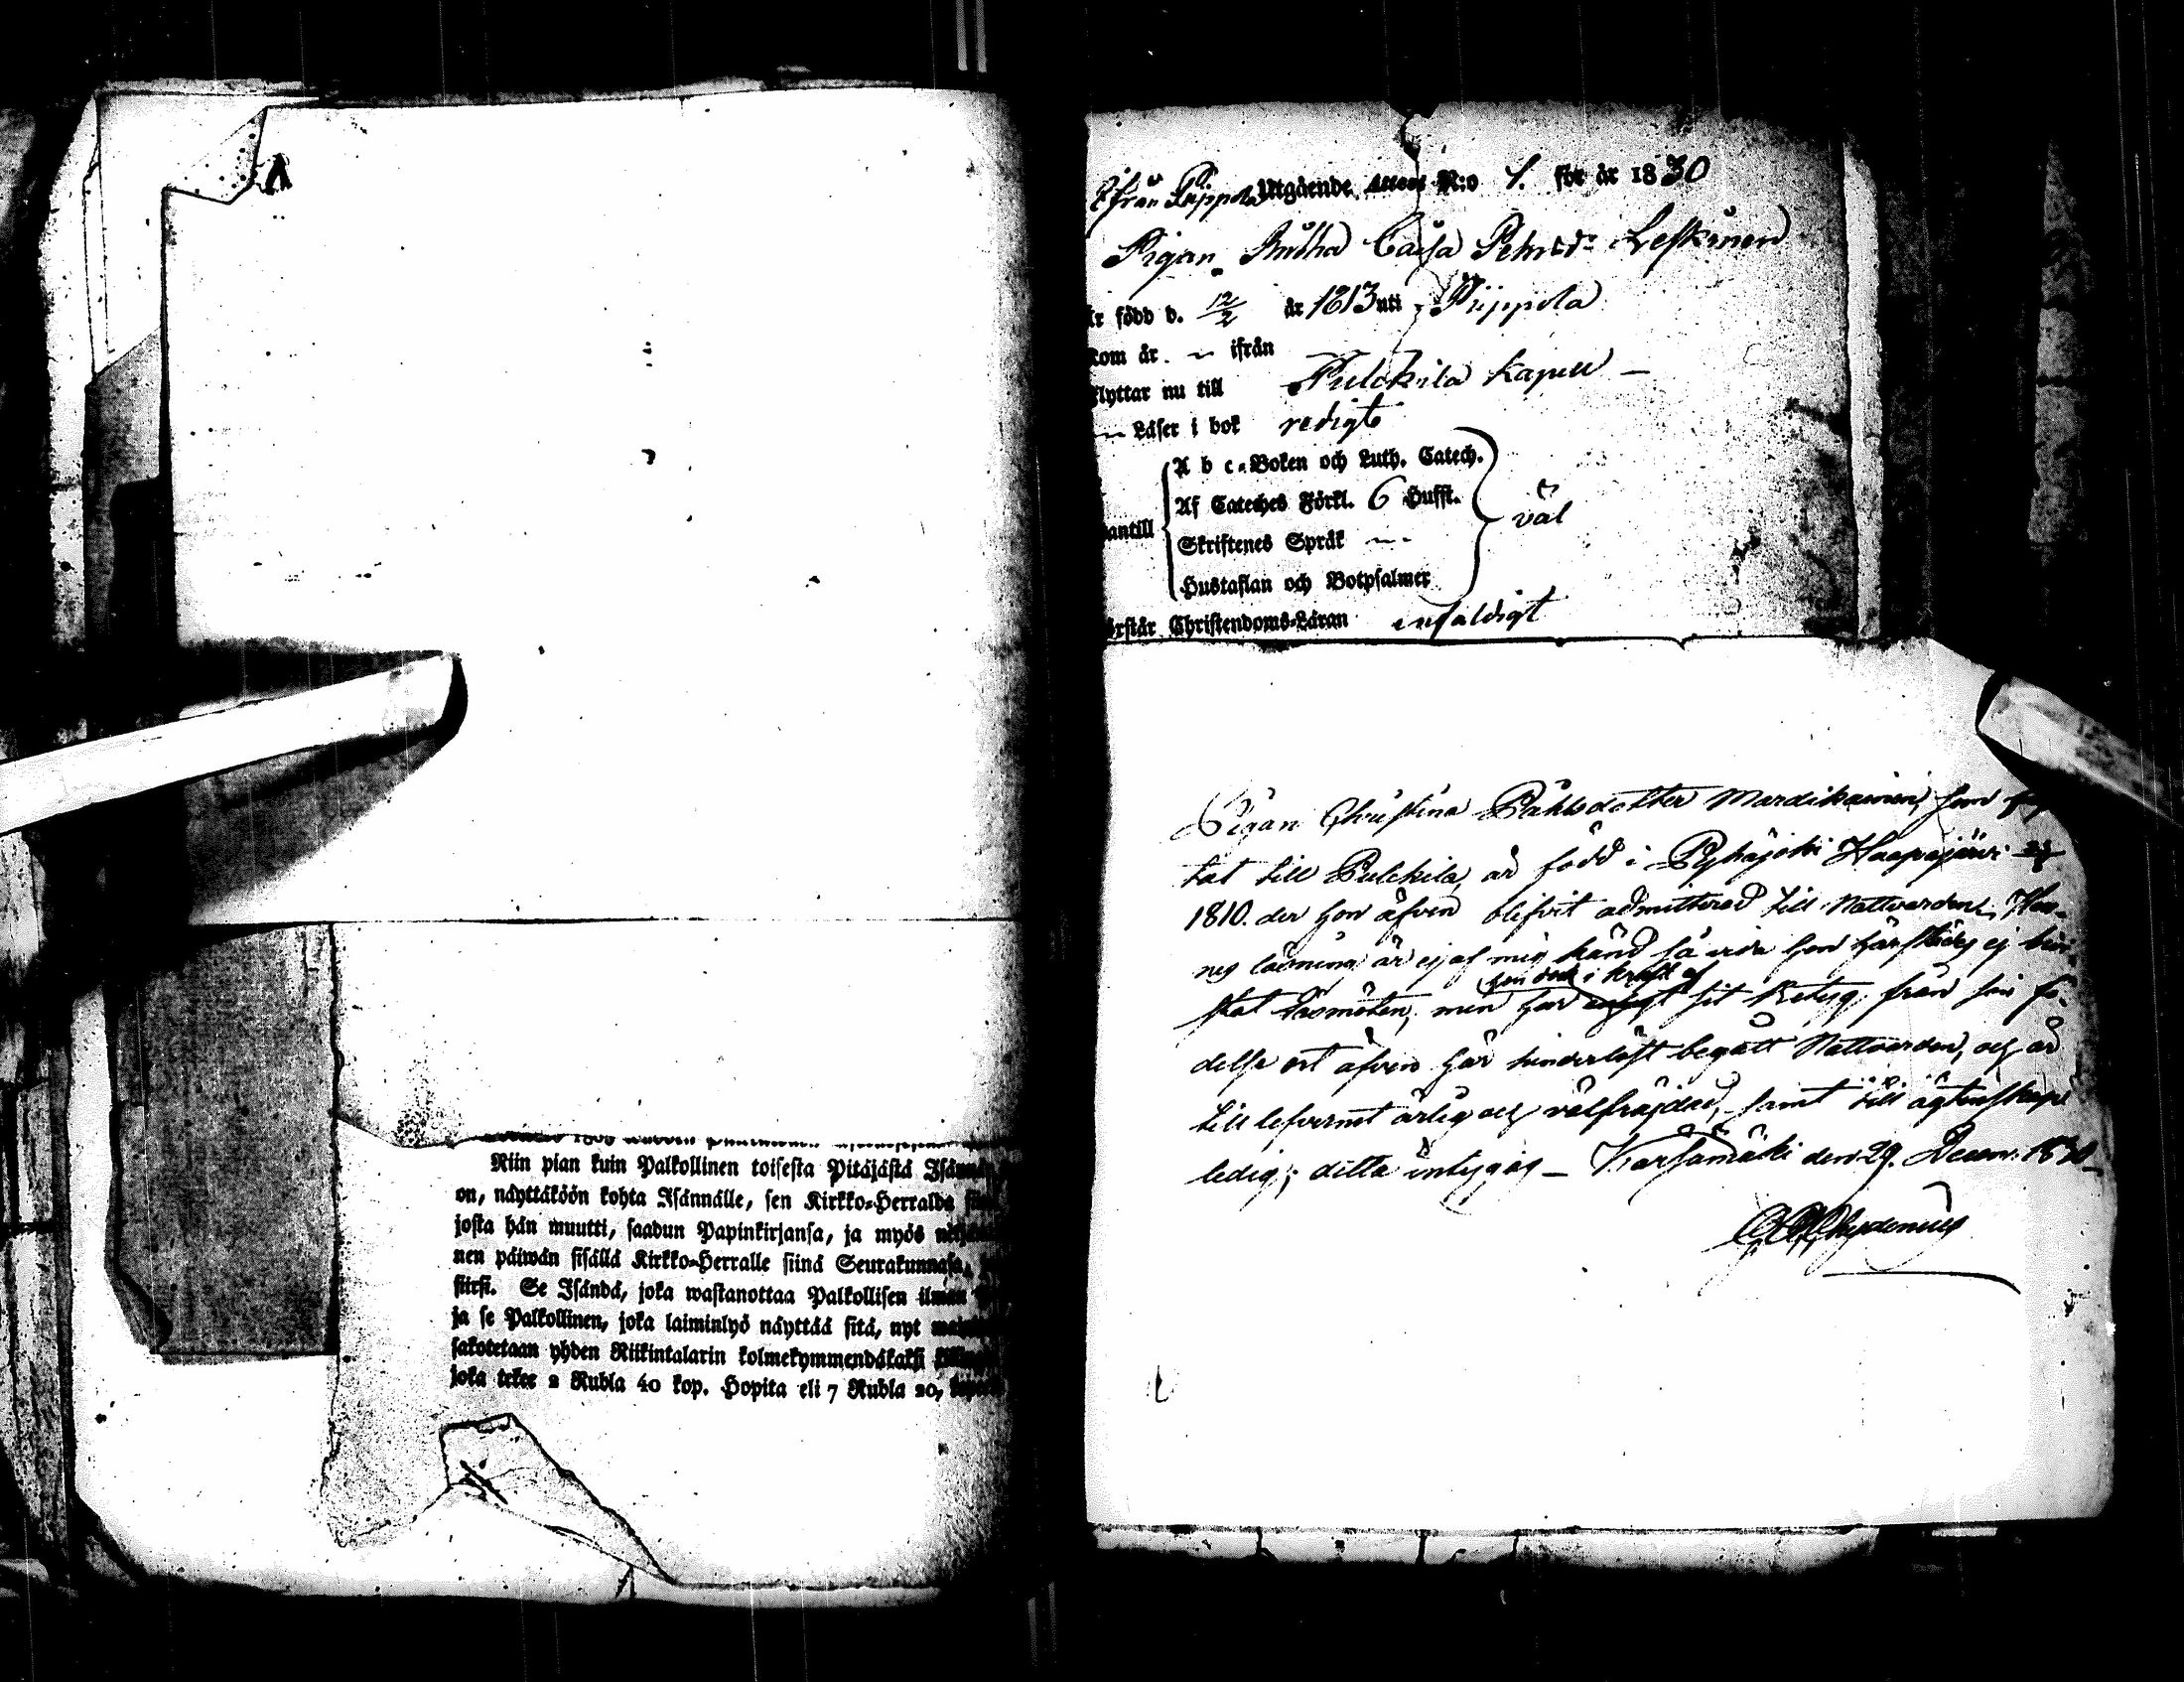 Niin pian kuin Palkollinen toisesta Pitäjästä
on, näyttäköön kohta Isännälle, sen Kirkko-Herralda
josta hän muutti, saadun Papinkirjansa, ja myös
nen päiwän sisällä Kirkko-Herralle siinä Seurakunnasa,
siirsi. Se Isändä, joka wastanottaa Palkollisen ilman
ja se Palkollinen, joka laiminlyö näyttää sitä, nyt
sakotetaan yhden Riikintalarin kolmekymmendäkaksi
joka tekee 2 Rubla 40 kop. Hopita eli 7 Rubla 20,
ifrån Piippola Utgående Attest N:o 1. för år 1830
Pigan Anna Caisa Petersd:r Leskinen
är född d. 12/2 år 1813 uti Piippola
kom år — ifrån
flyttar nu till Pulckila Kapell —
Läser i bok redigt
A b c-Boken och Luth. Catech.
Af Cateches Förkl. 6 Hufst.
antill väl
Skriftenes Språk —
Hustaflan och Botpsalmer
örstår Christendoms-Läran enfaldigt
Pigan Christina Påhlsdotter Mardikainen, som
tat till Pulckila, är född i Pyhäjoki Haapajärvi
1810. der hon äfven blifvit admitterad till Nattvarden. Hen-
nes läsning är ej af mig känd så vida hon härstädes ej
hon dock i kraft af
stat Läsmöten, men har sit betyg från sin fö-
delse ort äfven här hinderlöst begått Nattvarden, och är
till lefvernet ärlig och välfräjdad, samt till ägtenskap
ledig; ditta intygas — Kärsämäki den 29. Decem. 1830
Chydenius